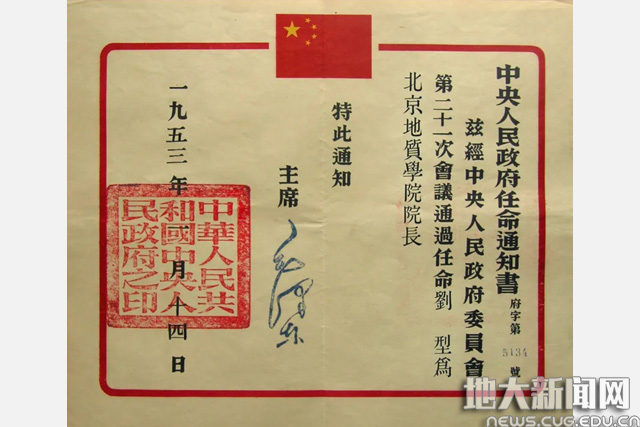 中央人民政府任命通知書
府字第5134號
兹經中央人民政府委員會
第二十一次會議通過任命劉型為
北京地質學院院長
特此通知
主席
毛澤東
一九五三年一月十四日
中華人民共
和國中央人
民政府之印
地大新闻网
news.cug.edu.cn